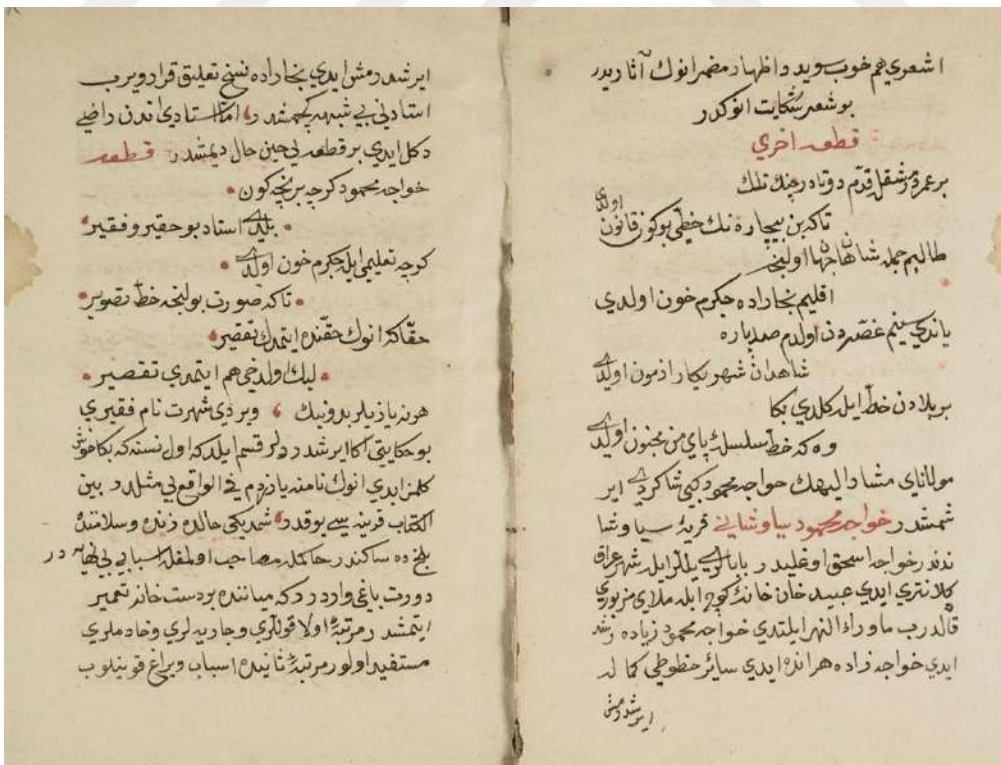 اشعري هم خوب سويدر و اظهار مضمر انوك آثاريدر
بو شعر شكايت انوكدر
قطعه اخري
بر عمر در مشقله قدم دوتا در چنك تنك
تاكه بن بيچاره نك خطى بو كون قانون اولدى
طالبم جمله شاهان جهان اولنجه
اقليم بخاراده جكرم خون اولدي
ياندي سينم غصه دن اولدم صد پاره
شاهدان شهر بكا راذمون اولدى
بر بلادن خط ايله كلدي بكا
وه كه خط سلسله پاى من مجنون اولدى
مولاناى مشار اليهك خواجه محمود كبى شاكردى اير
شمشدر خواجه محمود سياوشانى قريۀ سياوشا
ندندر خواجه اسحق اوغليدر بابالرى يللرايله شهر عراق
كلانترى ايدي عبيد خان خانه كوچ ايله ملاى مزبوري
قالدرب ماوراء النهر ايلتدي خواجه محمود زياده رشد
ايدي خواجه زاده هراتده ايدي سائر خطوطى كماله
ايرشدرمش
ايرشدرمش ايدي بخاراده نسخ تعليق قرار ويرب
استادنى بى شبهه كچمشدر اما استادى اندن راضى
دكل ايدي بر قطعه يى حين حال ديمشدر قطعه
خواجه محمود كرچه بر نچه كون
بلدى استاد بو حقير و فقير
كرچه تعليمى ايله جكرم خون اولدى
تاكه صورت بولنجه خط تصوير
حقا كه انوك حقنده ايتمدك تقصير
ليك اولدخى هم ايتمدي تقصير
هر نه يازيلر بد و نيك ويردى شهرت نام فقيري
بو حكايتى اكا ايرشدردلر قسم ايلدكه اول نسنه كه بكا خوش
كلمز ايدي انوك نامنه يازردم فى الواقع بى مثلدر و بين
الكتاب قرينه سى يوقدر شمديكى حالده زنده و سلامتده
بلخ ده ساكندر حاكمله مصاحب اولمغله اسبابى بى نهايه در
دورت باغى واردر كه ميانده بر دست خانه تعمير
ايتمشدر مرتبۀ اولا قوللري و جاريه لري و خادملري
مستقيد اولور مرتبۀ ثانيده اسباب و يراغ قوينيلوب